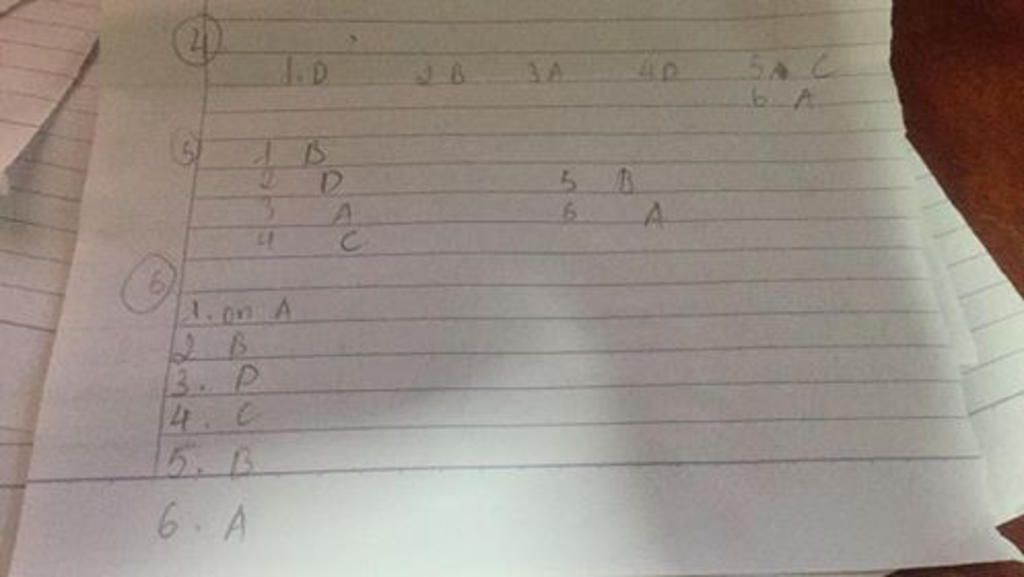 4
1. D 2 B 3 A 4 D 5 C
6 A
5 1 B
2 D 5 B
3 A 6 A
4 C
6
1. on A
2 B
3. D
4. C
5. B
6. A